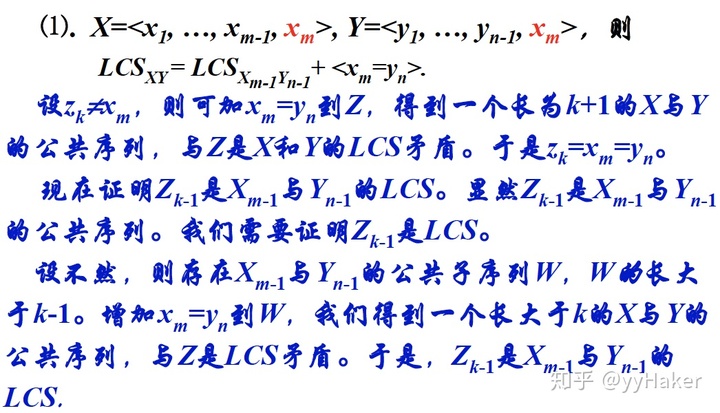 (1). X=<x₁, …, xₘ₋₁, xₘ>, Y=<y₁, …, yₙ₋₁, xₘ>，则
LCS_XY = LCS_Xₘ₋₁Yₙ₋₁ + <xₘ=yₙ>.
设zₖ≠xₘ，则可加xₘ=yₙ到Z，得到一个长为k+1的X与Y
的公共序列，与Z是X和Y的LCS矛盾。于是zₖ=xₘ=yₙ。
现在证明Zₖ₋₁是Xₘ₋₁与Yₙ₋₁的LCS。显然Zₖ₋₁是Xₘ₋₁与Yₙ₋₁
的公共序列。我们需要证明Zₖ₋₁是LCS。
设不然，则存在Xₘ₋₁与Yₙ₋₁的公共子序列W，W的长大
于k-1。增加xₘ=yₙ到W，我们得到一个长大于k的X与Y的
公共序列，与Z是LCS矛盾。于是，Zₖ₋₁是Xₘ₋₁与Yₙ₋₁的
LCS.
知乎 @yyHaker